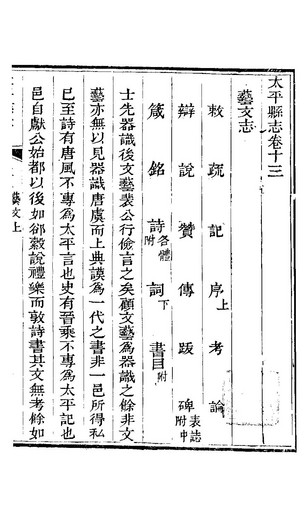 太平縣志卷十三
藝文志
敕 疏 記 序上 考 論
辯 說 贊 傳 跋 碑表誌附中
箴 銘 詩各體附 詞下 書目附
士先器識後文藝裴公行儉言之矣顧文藝為器識之餘非文
藝亦無以見器識唐虞而上典謨為一代之書非一邑所得私
已至詩有唐風不專為太平言也史有晉乘不專為太平記也
邑自獻公始都以後如郤縠說禮樂而敦詩書其文無考餘如
藝文上